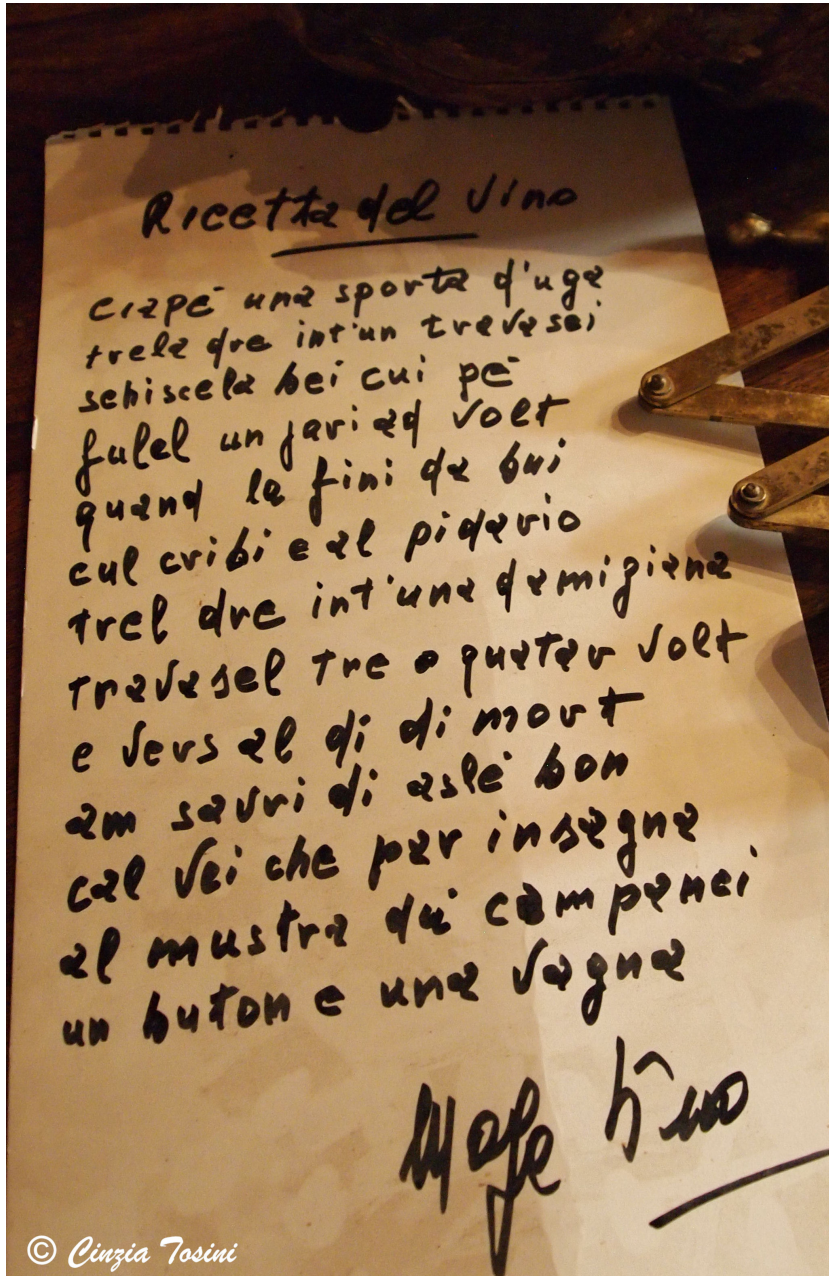 Ricetta del Vino
ciapé una sporta d'uga
trela dre int'un travasei
schiscela bei cui pé
fulel un pari ad volt
quand la fini da bui
cul cribi e al pidario
trel dre int'una damigiana
travasel tre o quatar volt
e vers al di di mort
am savri di aslé bon
cal vei che par insegna
al mustra dù campanei
un buton e una vagna
© Cinzia Tosini